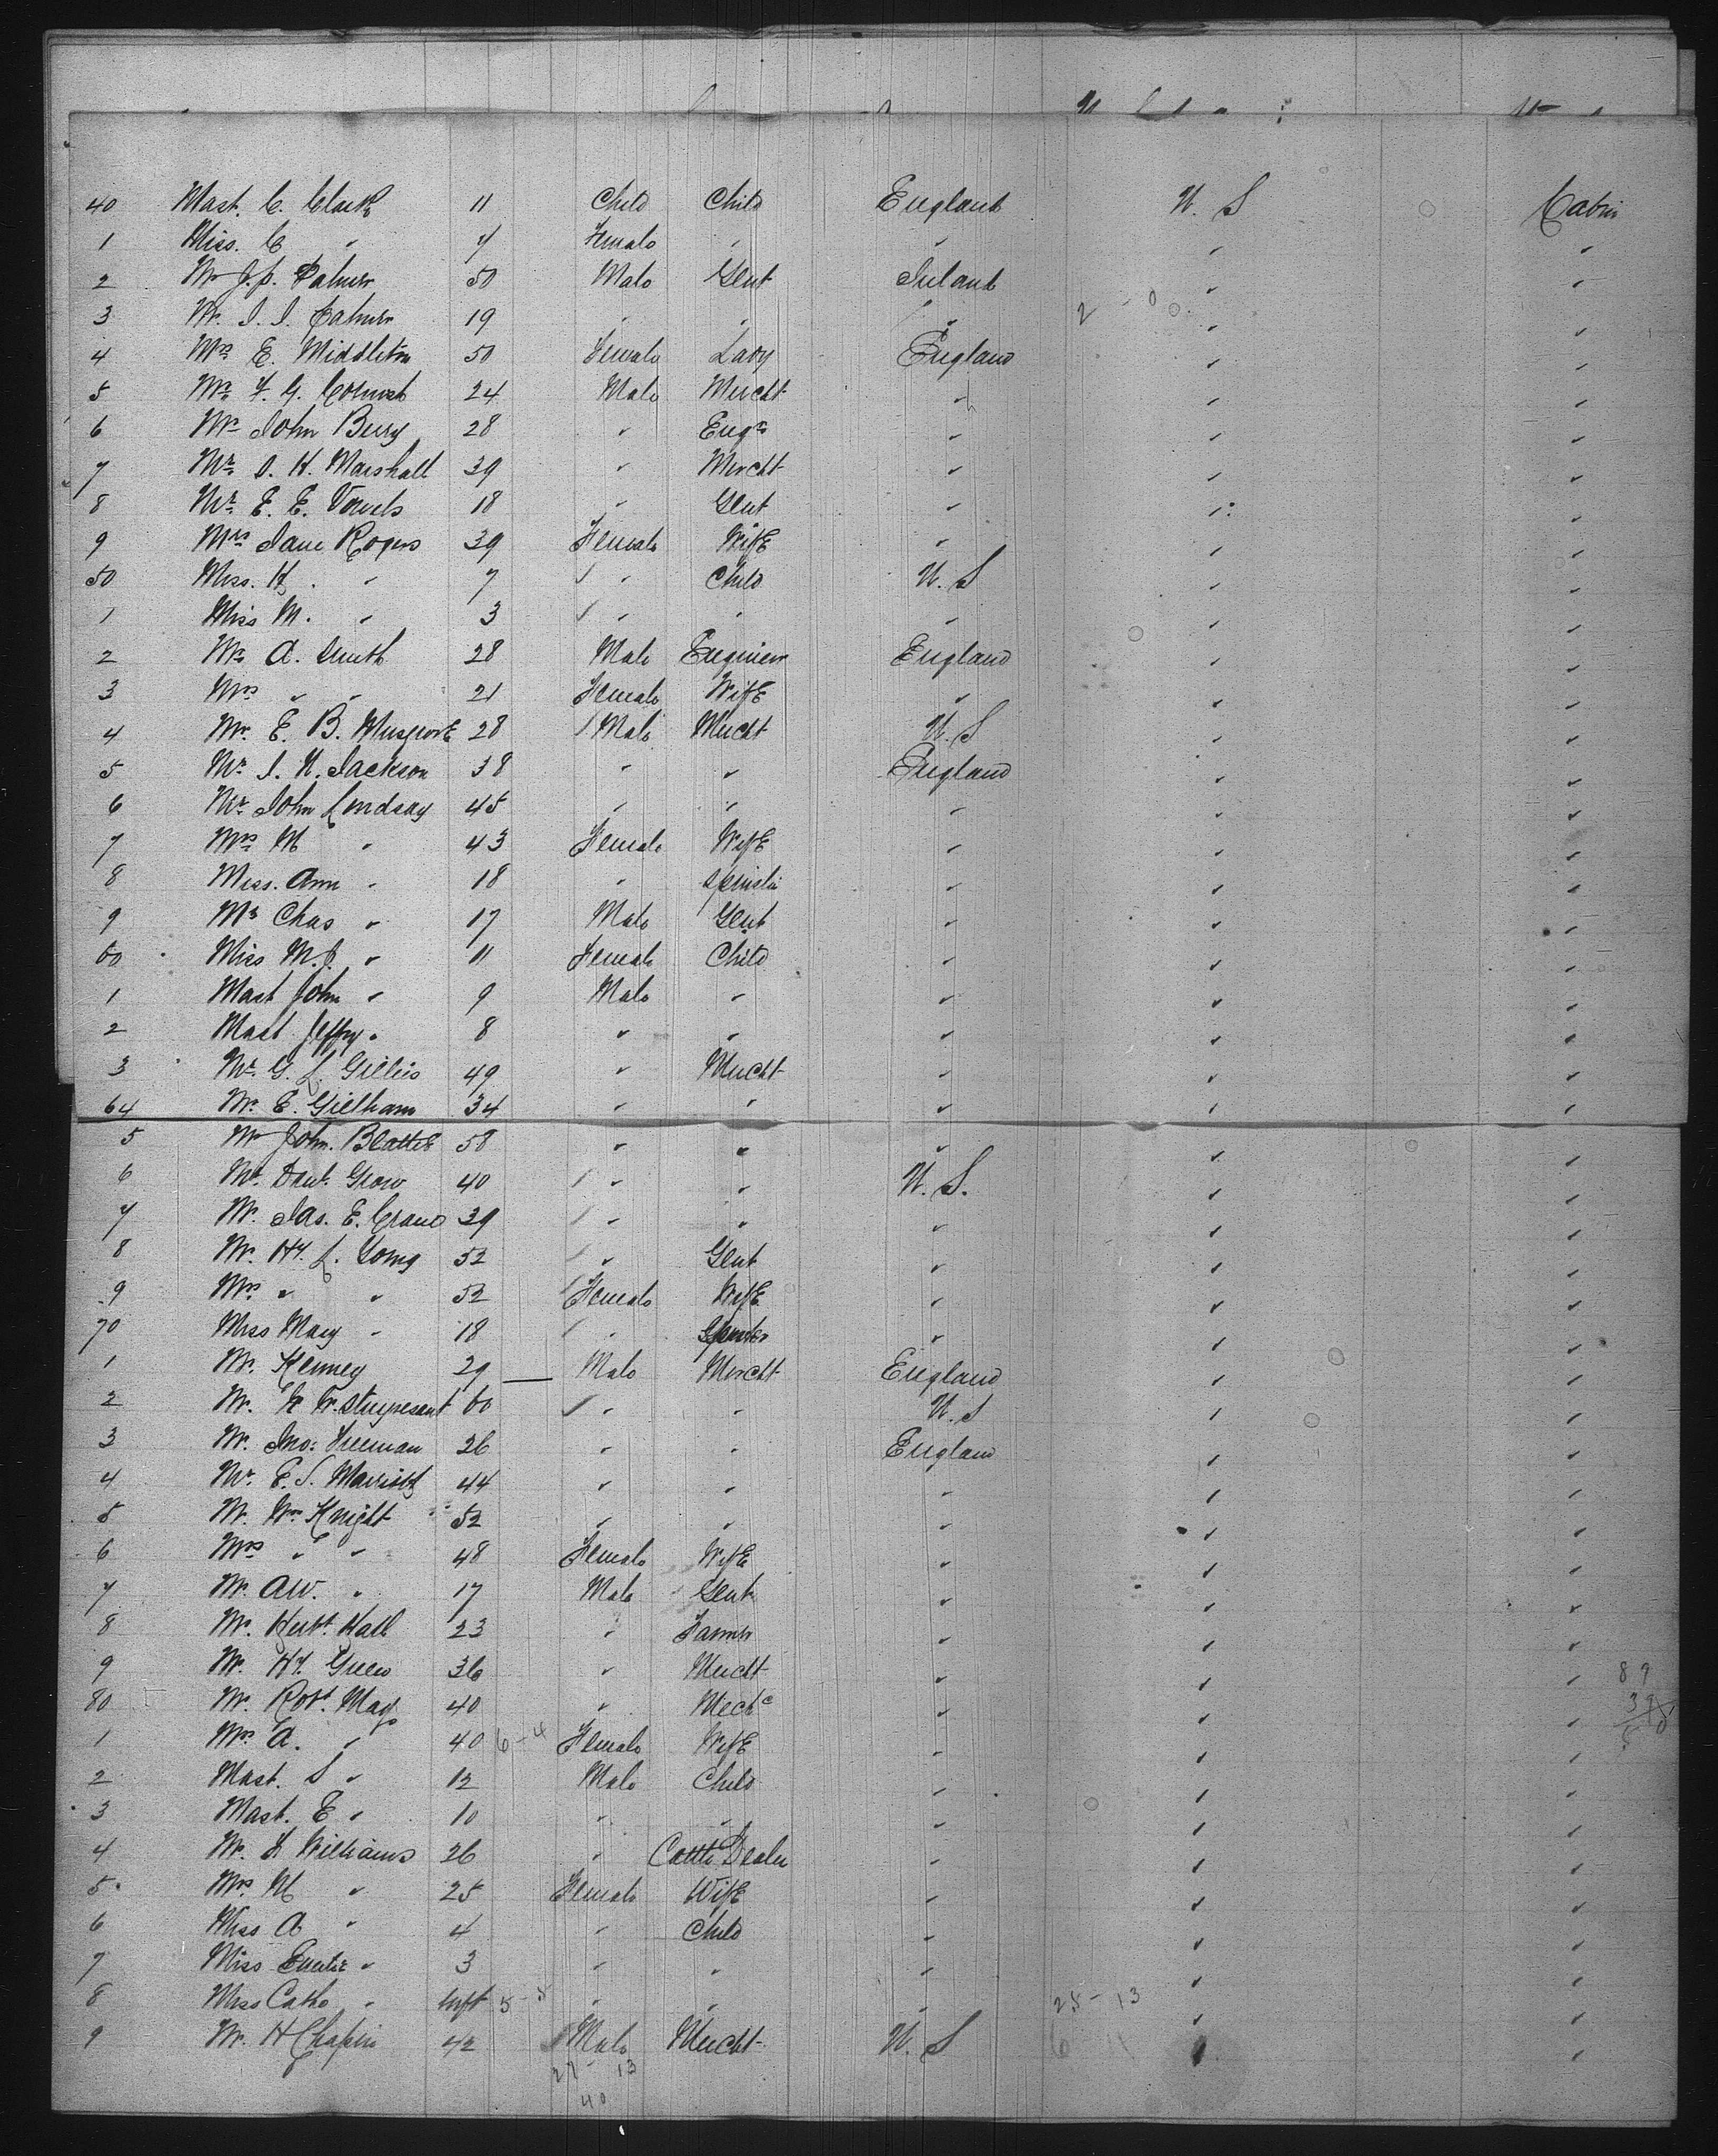 40 Mast. C. Clark 11 Child Child England U. S Cabin
1 Miss. C " 7 Female " " " "
2 Mr J. P. Palmer 50 Male Gent Ireland " "
3 Mr. I. I. Palmer 19 " " " " "
4 Mrs E. Middleton 50 Female Lady England " "
5 Mr. F. G. Cornish 24 Male Mercht " " "
6 Mr John Berry 28 " Engr " " "
7 Mr. D. H. Marshall 39 " Mercht " " "
8 Mr. E. E. Vowels 18 " Gent " " "
9 Mrs Jane Rogers 39 Female Wife " " "
50 Miss. H. " 7 " Child U. S " "
1 Miss M. " 3 " " " " "
2 Mr A. Smith 28 Male Engineer England " "
3 Mrs " " 21 Female Wife " " "
4 Mr. E. B. Musgrove 28 Male Mercht U. S " "
5 Mr. J. H. Jackson 38 " " England " "
6 Mr. John Lindsay 45 " " " " "
7 Mrs M " 43 Female Wife " " "
8 Miss. Ann " 18 " Spinster " " "
9 Mr Chas " 17 Male Gent " " "
60 Miss M. J. " 11 Female Child " " "
1 Mast John " 9 Male " " " "
2 Mast Jeffry " 8 " " " " "
3 Mr. G. L. Gillies 49 " Mercht " " "
64 Mr. E. Gillham 34 " " " " "
5 Mr John. 58 " " " " "
6 Mr. Danl. Grow 40 " " U. S. " "
7 Mr. Jas. E. Crane 39 " " " " "
8 Mr. Hy. L. Young 52 " Gent " " "
9 Mrs " " 52 Female Wife " " "
70 Miss Mary " 18 " Spinster " " "
1 Mr. Kenney 29 Male Mercht England " "
2 Mr. Stuyvesant 60 " " U. S " "
3 Mr. Jno: Freeman 26 " " England " "
4 Mr. E. S. Marriott 44 " " " " "
5 Mr. Wm Knight 52 " " " " "
6 Mrs " " 48 Female Wife " " "
7 Mr. AW. " 17 Male Gent " " "
8 Mr. Herbt. Hall 23 " Farmer " " "
9 Mr. Hy. Green 36 " Mercht " " " 89
80 Mr. Robt. May 40 " Mechc " " "
1 Mrs A. " 40 6-4 Female Wife " " "
2 Mast. S " 12 Male Child " " "
3 Mast. E " 10 " " " " "
4 Mr. F Williams 26 " Cattle Dealer " " "
5 Mrs. M " 25 Female Wife " " "
6 Miss A " 4 " Child " " "
7 Miss " 3 " " " " "
8 Miss Cath " Inft 5-5 " " " 25-13 " "
9 Mr. H Chapin 42 Male Mercht U. S " "
27 - 13
40